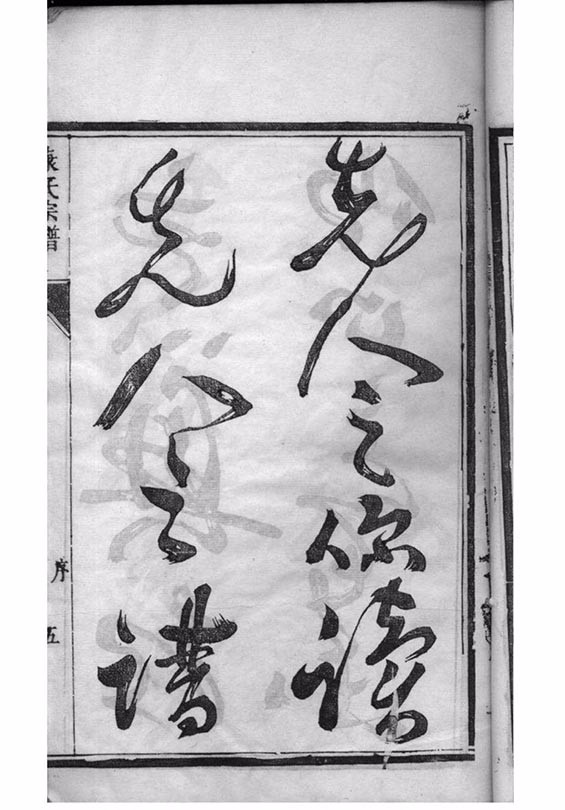 先人之深讀
先人之譜
袁氏宗譜
序
五